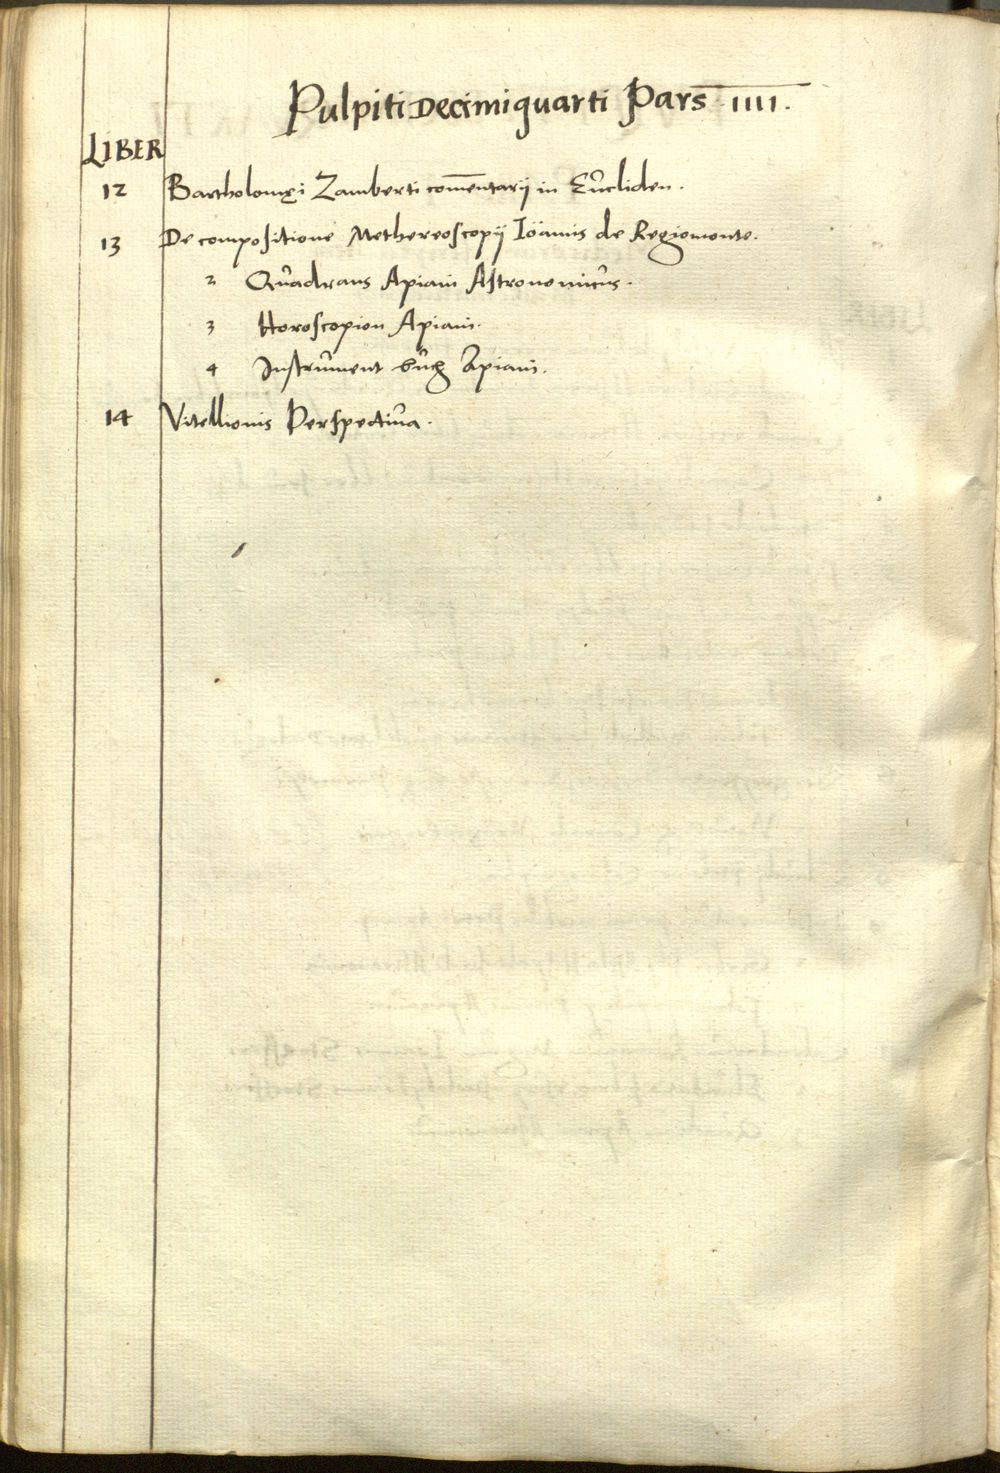 Pulpiti Decimiquarti Pars IIII.
LIBER
12 Bartholomęi Zamberti com̄entarij in Eůcliden.
13 De compositione Methereoscopij Ioānis de Regiomonte.
2 Qůadrans Apiani Astronomicůs.
3 Horoscopion Apiani.
4 Instrůment bůch Apiani.
14 Vitellionis Perspectiůa.